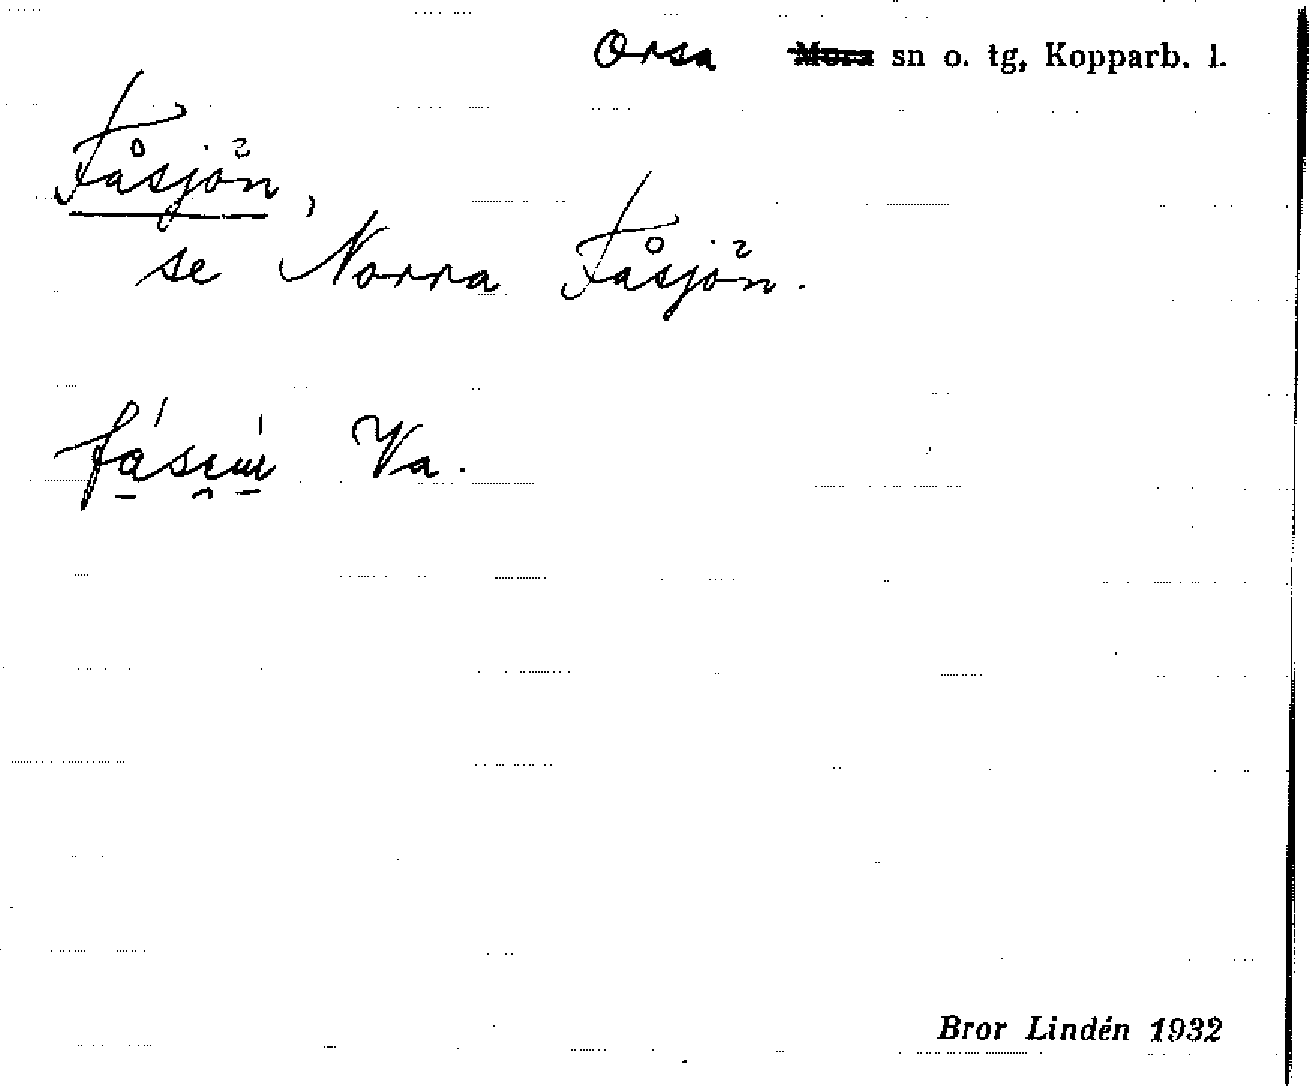 Orsa ~~Mora~~ sn o. tg, Kopparb. l.
Fåsjön,
se Norra Fåsjön.
Va.
Bror Lindén 1932